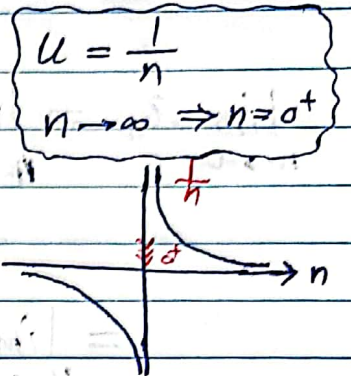 u = 1/n
n → ∞ ⇒ n = 0⁺
1/n
0⁺
n